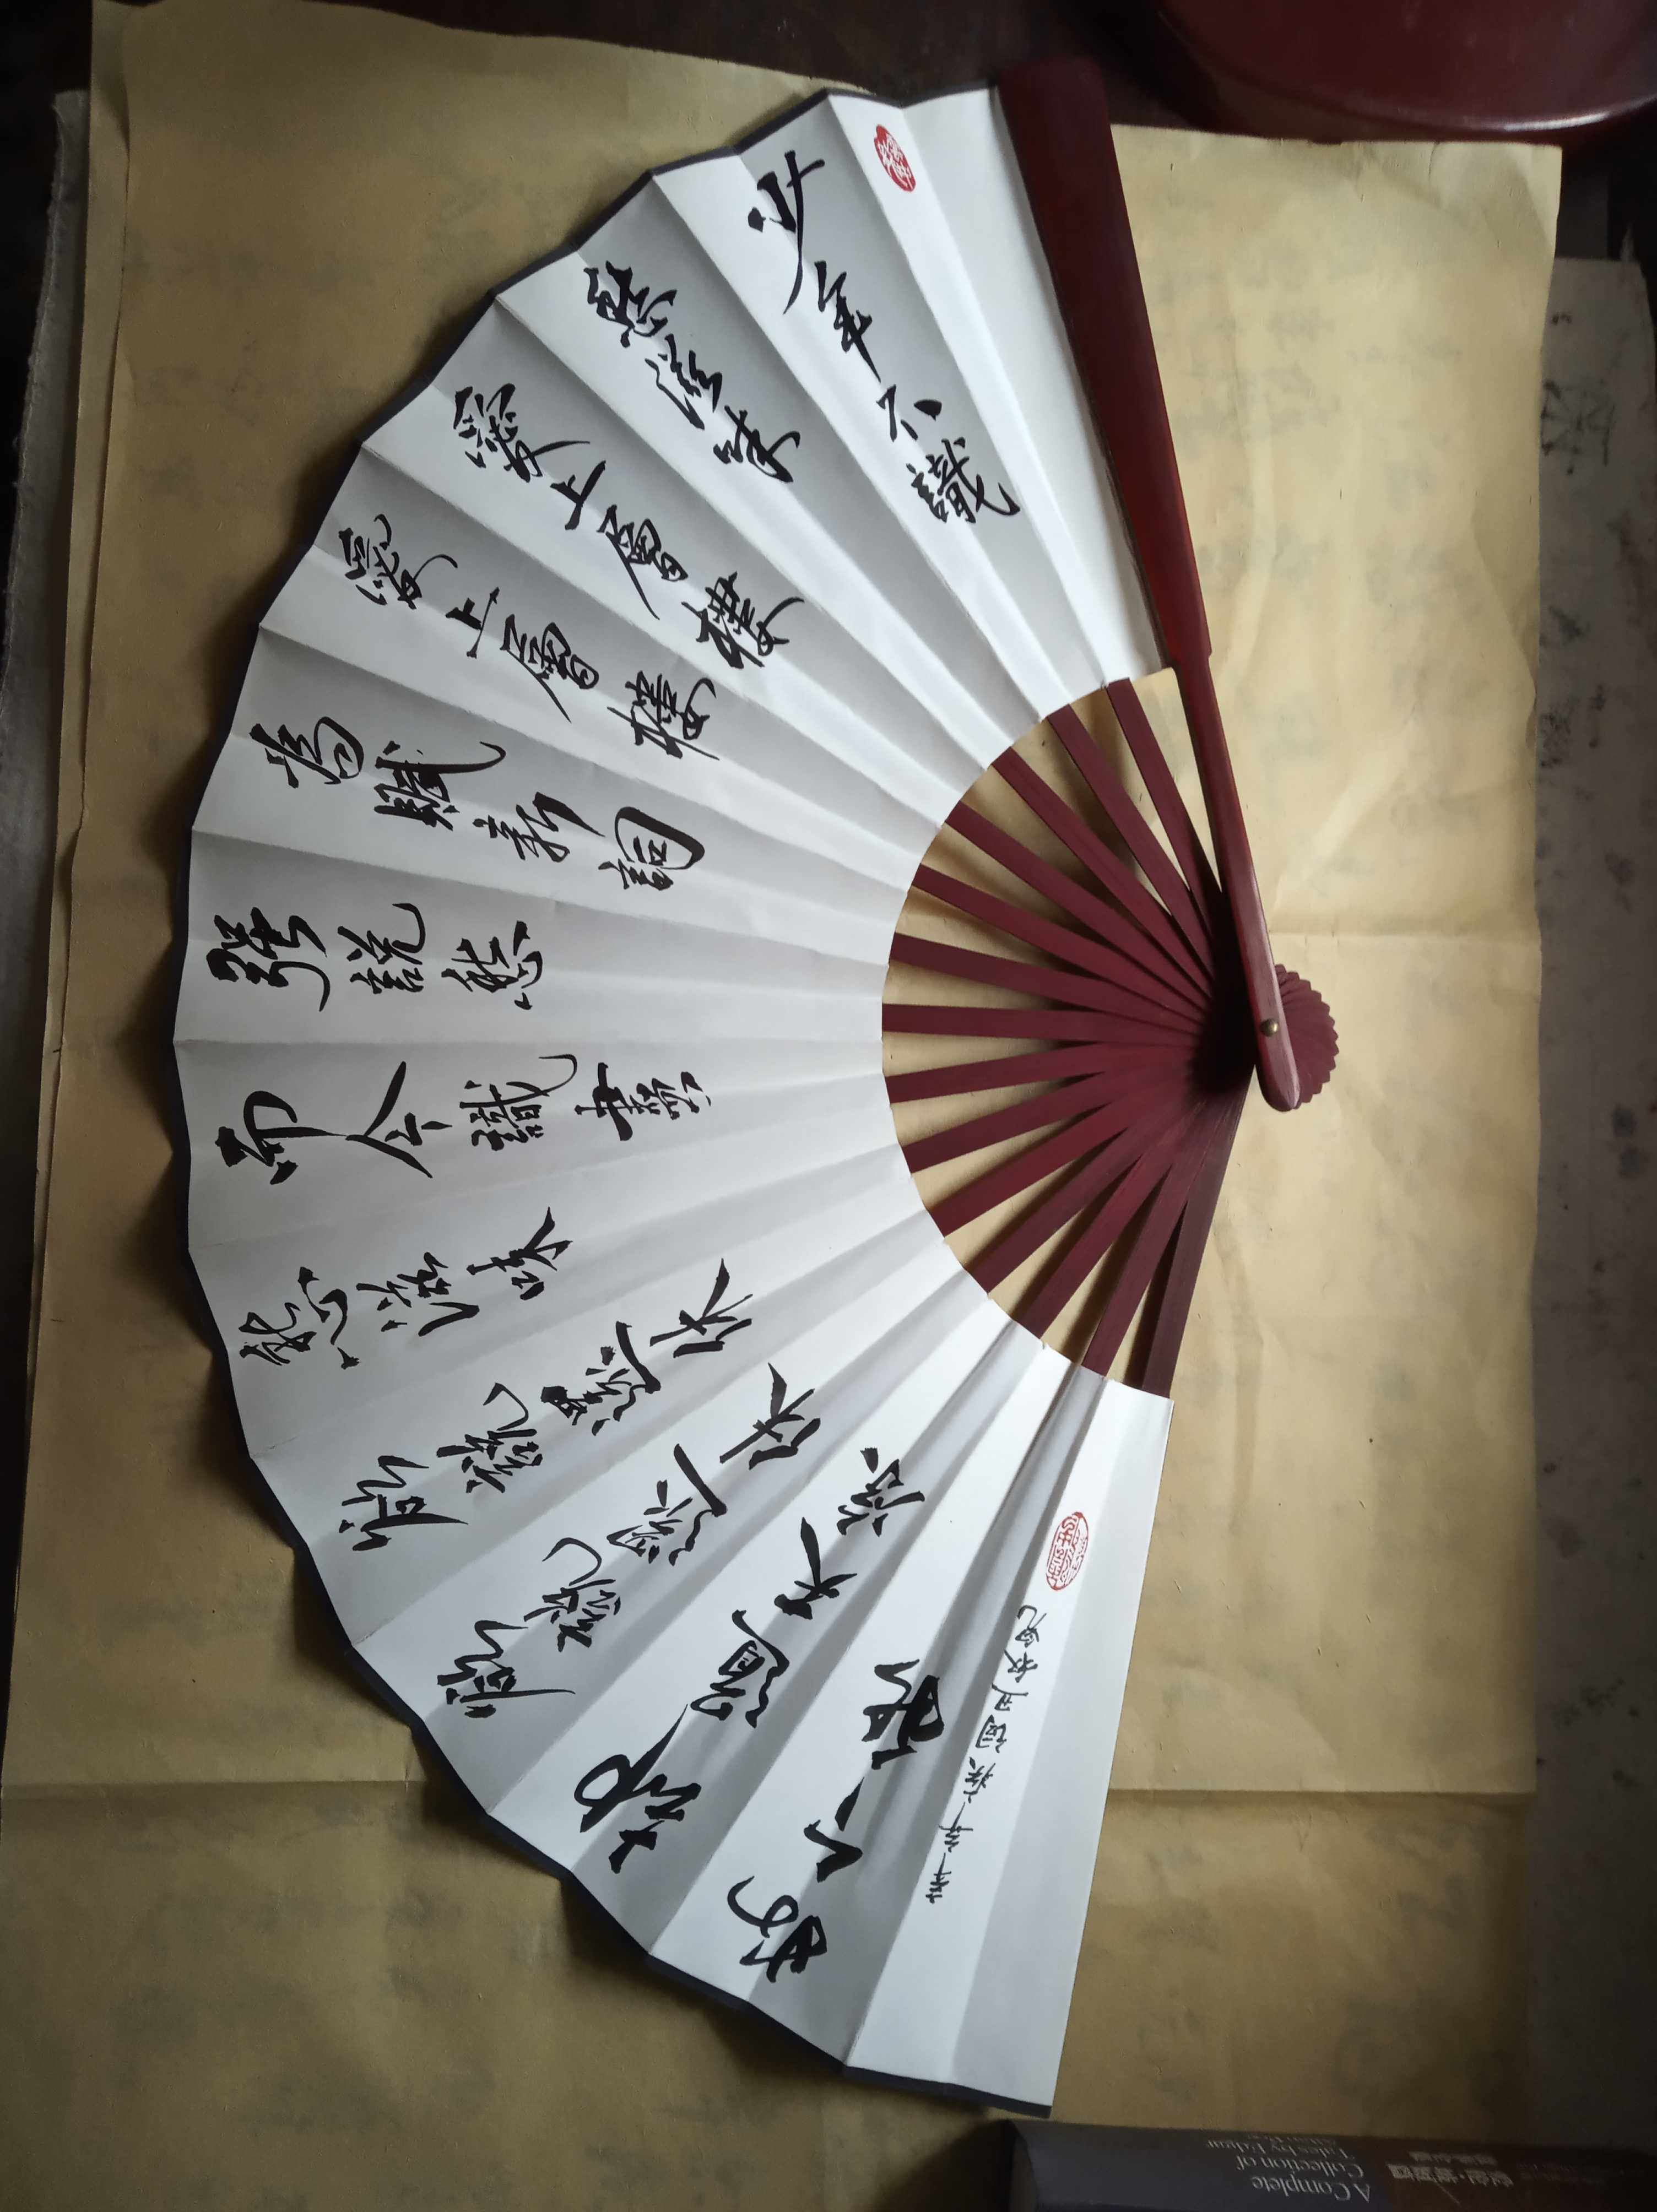 少年不識
愁滋味
愛上層樓
愛上層樓
為賦新詞
強說愁
而今識盡
愁滋味
欲說還休
欲說還休
却道天凉
好个秋
辛弃疾詞丑奴兒
A Complete
Collection of
Tales by Edgar